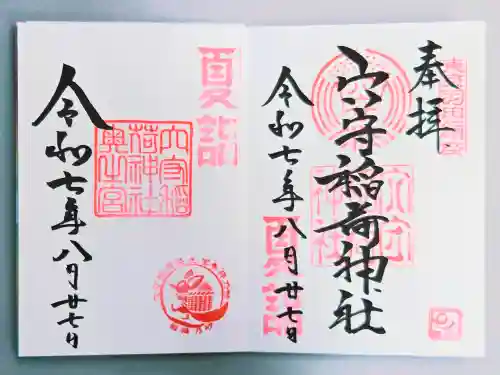 奉拝
穴守稲荷神社
令和七年八月廿七日
夏詣
夏詣
穴守稲荷神社奥之宮
令和七年八月廿七日